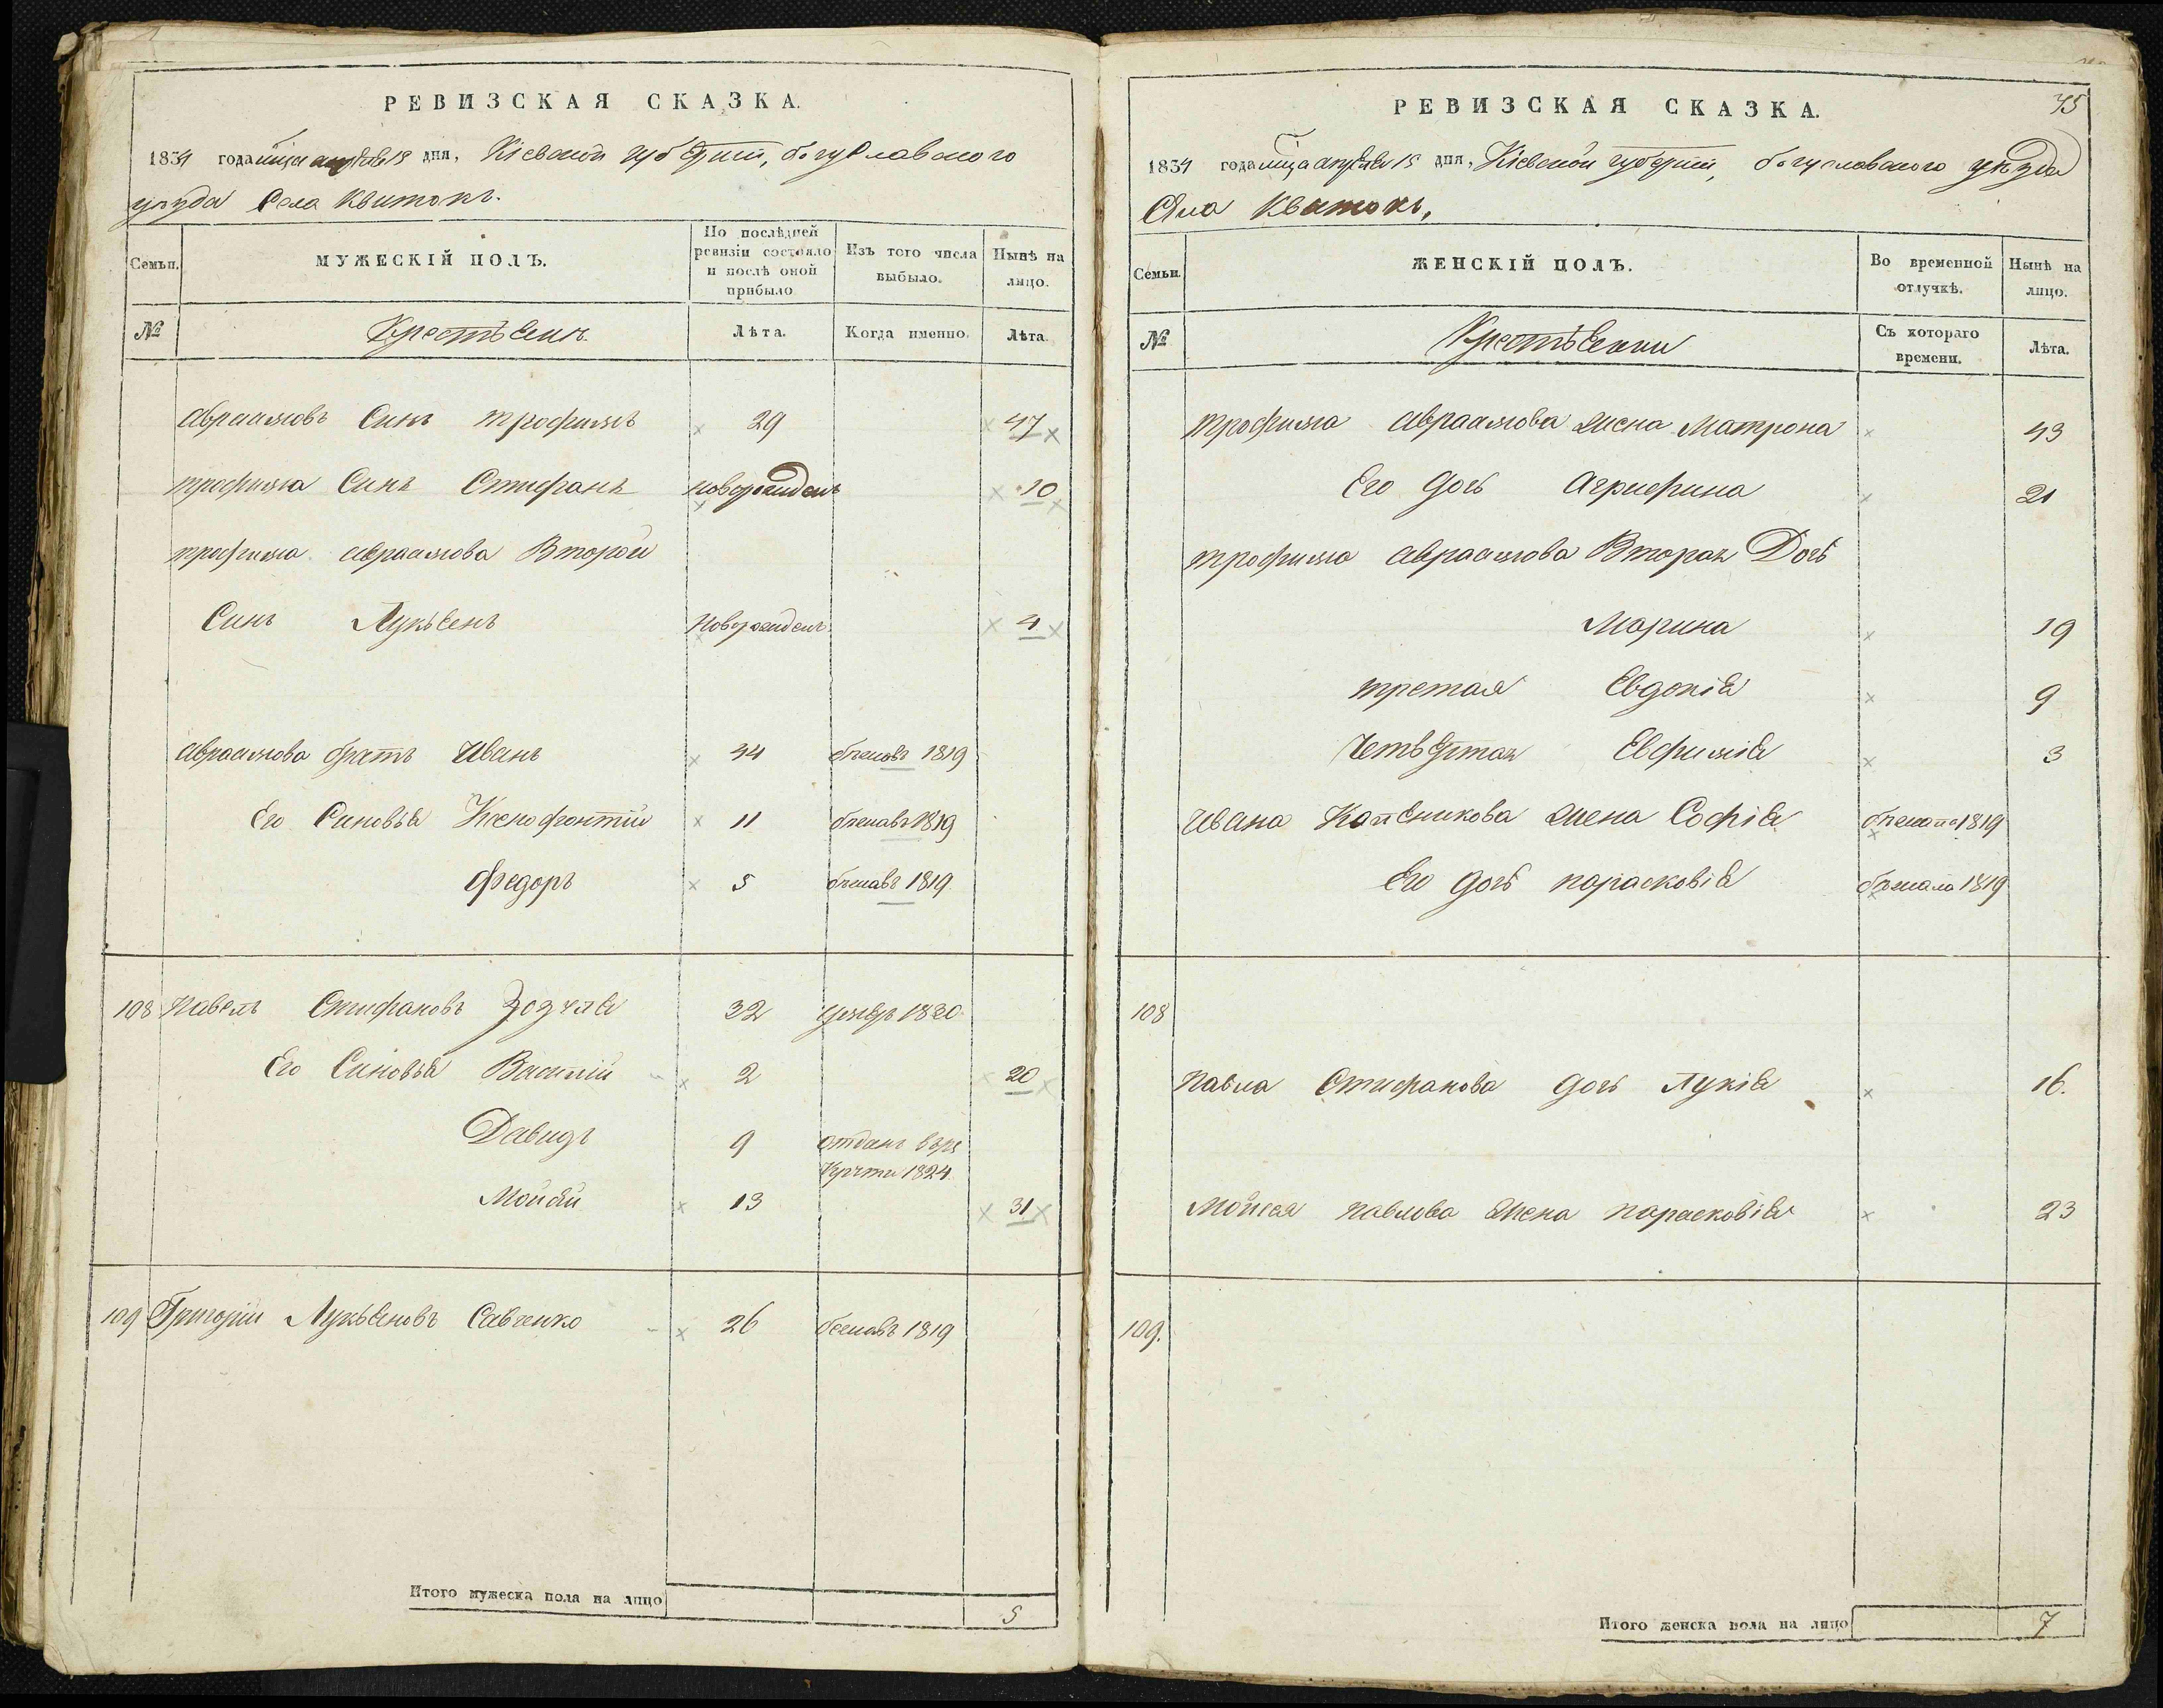 РЕВИЗСКАЯ СКАЗКА.
1834 года мца апреля 15 дня, Кіевской губерніи, богуславского
уѣзда Села Квитокъ.
Семьи.
МУЖЕСКІЙ ПОЛЪ.
По послѣдней ревизіи состояло и послѣ оной прибыло
Изъ того числа выбыло.
Нынѣ на лицо.
№
Крестьяне.
Лѣта.
Когда именно.
Лѣта.
авраамовъ Синъ трофимъ 29 47
трофима Синъ Стифанъ новорожденъ 10
трофима авраамова Второй
Синъ Лукьянъ Новорожденъ 4
авраамова братъ Иванъ 44 бѣжавъ 1819
Его Синовья Ксенофонтій 11 бѣжавъ 1819
Федоръ 5 бѣжавъ 1819
108 Павелъ Стифановъ 32 умеръ 1820
Его Синовья Василій 2 20
Давидъ 9 отданъ въ ре
круты 1824
Мойсей 13 31
109 Григорій Лукьяновъ Савченко 26 бежавъ 1819
Итого мужеска пола на лицо 5
РЕВИЗСКАЯ СКАЗКА. 75
1834 года мца апреля 15 дня, Кіевской губерніи, богуславского уѣзда
Села Квитокъ,
Семьи.
ЖЕНСКІЙ ПОЛЪ.
Во временной отлучкѣ.
Нынѣ на лицо.
№
Крестьянки
Съ котораго времени.
Лѣта.
трофима авраамова жена Матрона 43
Его дочь Агрифина 21
трофима авраамова Вторая Дочь
Марина 19
третая Евдокія 9
Четвертая Евфимія 3
Ивана жена Софія бѣжала 1819
Его дочь парасковія бѣжала 1819
108
Павла Стифанова дочь Лукія 16.
Мойсея павлова жена парасковія 23
109.
Итого женска пола на лицо 7